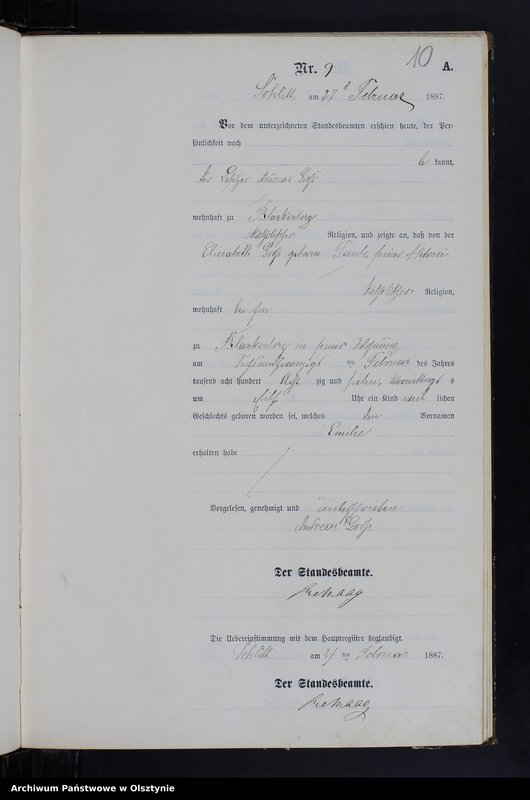 10
Nr. 9 A.
Schlitt am 27 Februar 1887.
Vor dem unterzeichneten Standesbeamten erschien heute, der Per-
sönlichkeit nach
be kannt,
der Andreas Groß
wohnhaft zu Blankenberg
katholischer Religion, und zeigte an, daß von der
Elisabeth Groß geborene seiner Ehefrau
katholischer Religion,
wohnhaft bei ihm
zu Blankenberg in seiner Wohnung
am ten Februar des Jahres
tausend acht hundert Acht zig und sieben, Vormittags
um elf Uhr ein Kind weib lichen
Geschlechts geboren worden sei, welches den Vornamen
Emilie
erhalten habe
Vorgelesen, genehmigt und unterschrieben
Andreas Groß
Der Standesbeamte.
Die Uebereinstimmung mit dem Hauptregister beglaubigt.
Schlitt am 27 ten Februar 1887.
Der Standesbeamte.
Archiwum Państwowe w Olsztynie